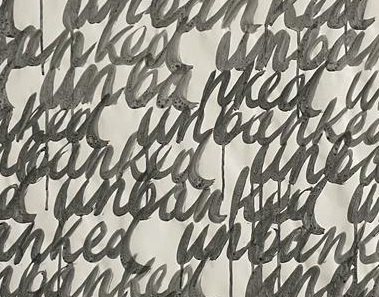 unbanked
anked unban
unbanked un
nked unbanked
unbanked unba
d unbanked u
anked unbank
unbanked unba